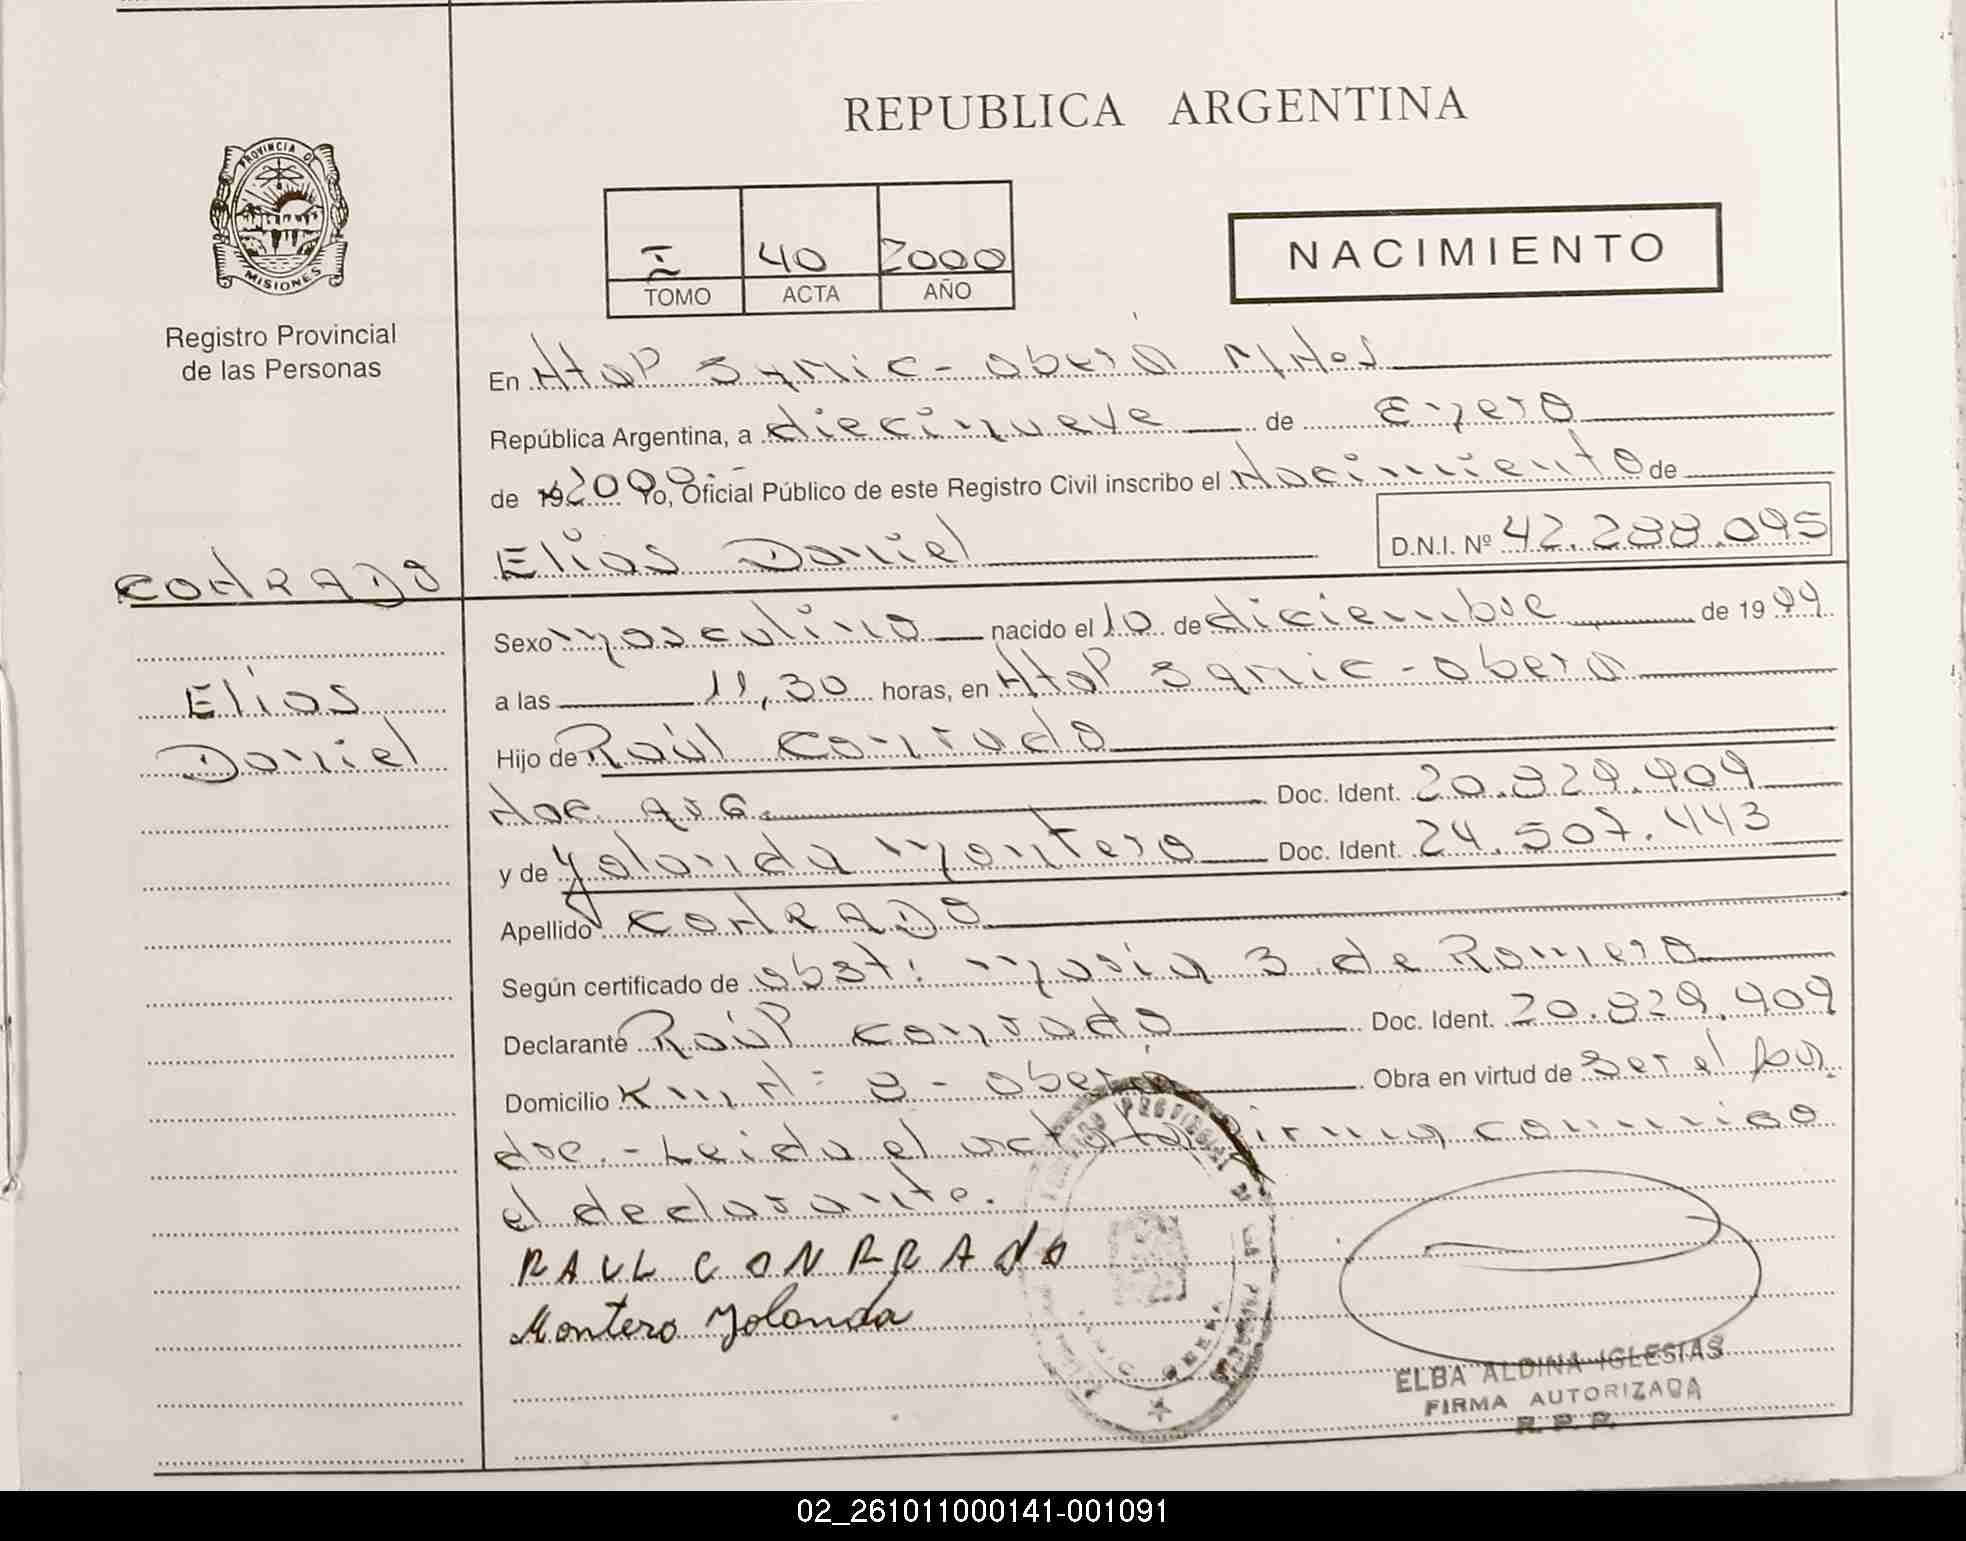 REPUBLICA ARGENTINA
PROVINCIA DE
MISIONES
Registro Provincial
de las Personas
I 40 2000
TOMO ACTA AÑO
NACIMIENTO
En Htal Samic - Oberá Mnes
República Argentina, a diecinueve de Enero
de 192000.- Yo, Oficial Público de este Registro Civil inscribo el Nacimiento de
Elias Daniel D.N.I. Nº 42.288.095
CONRADO
Elias
Daniel
Sexo masculino nacido el 10 de diciembre de 1999
a las 11,30 horas, en Htal Samic - Oberá
Hijo de Raúl Conrado
Nac. arg. Doc. Ident. 20.829.909
y de Yolanda Montero Doc. Ident. 24.507.443
Apellido CONRADO
Según certificado de obst: María S. de Romero
Declarante Raúl Conrado Doc. Ident. 20.829.909
Domicilio Km N: 8 - Oberá Obra en virtud de ser el pa
dre. - Leida el acta la firma conmigo
el declarante.
RAUL CONRRADO
Montero Yolanda
ELBA ALDINA IGLESIAS
FIRMA AUTORIZADA
R. P. P.
02_261011000141-001091